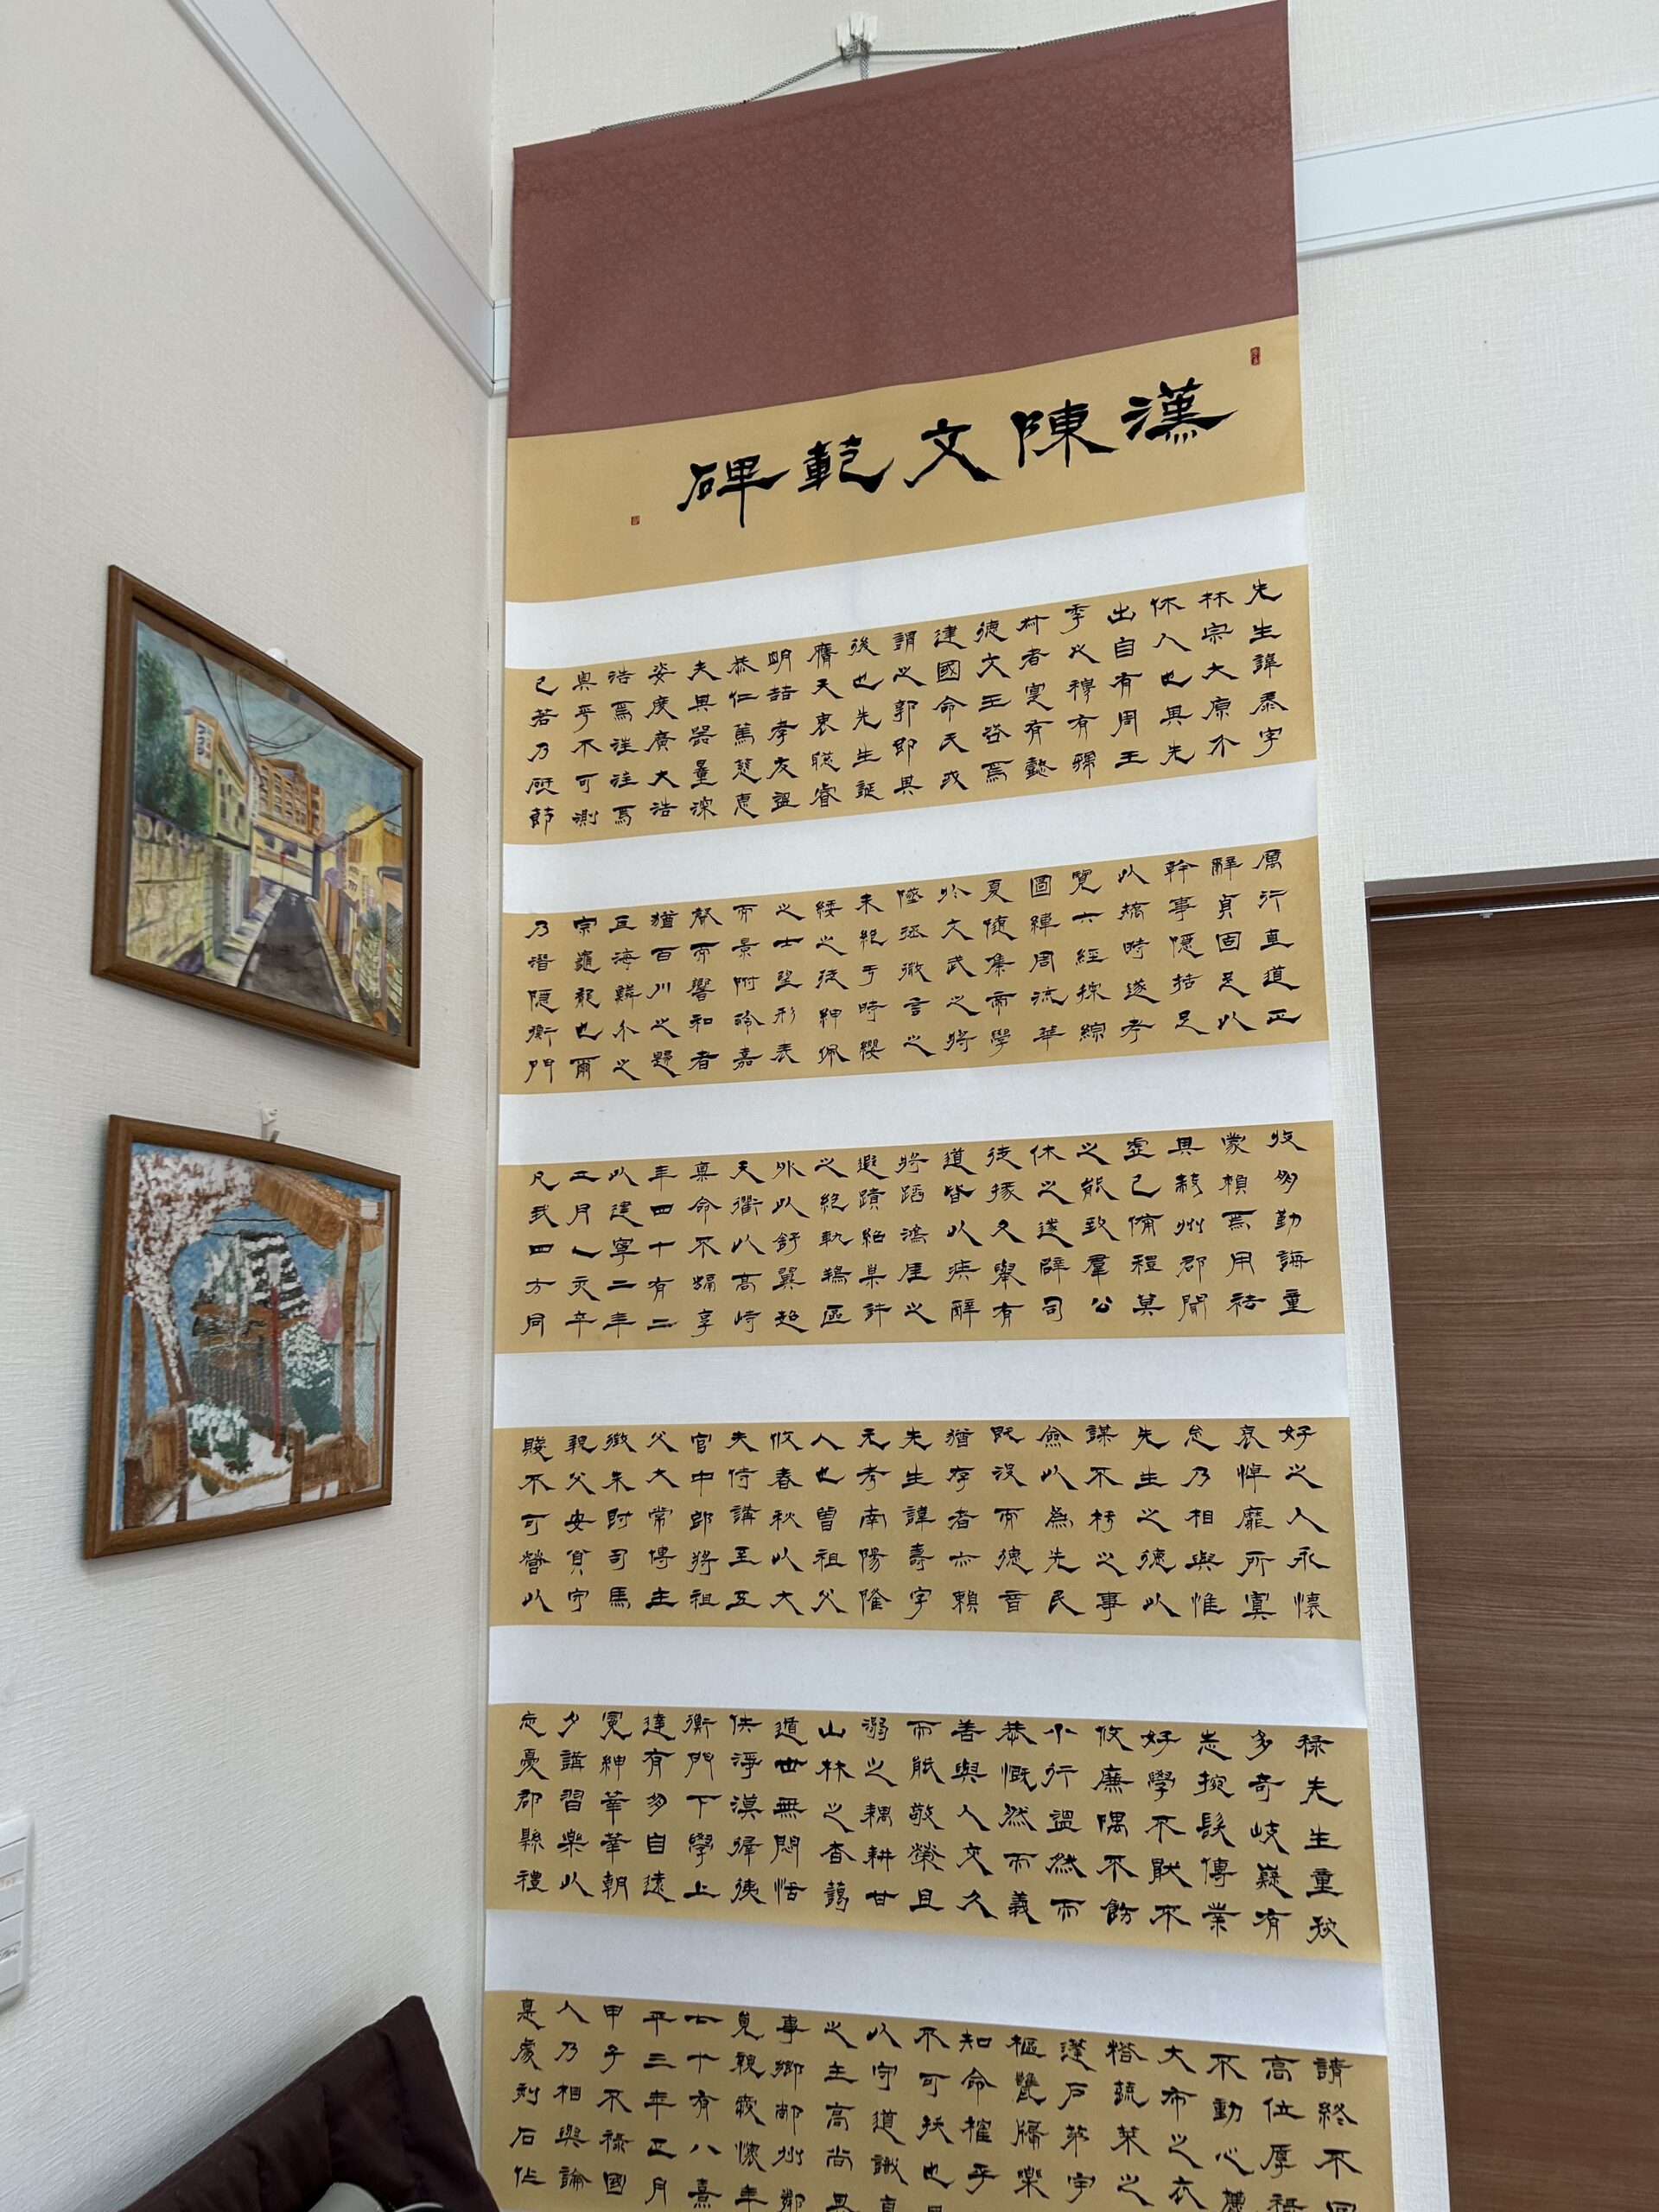 漢陳文範碑
先生諱泰字
林宗大原介
休人也其先
出自有周王
季之穆有虢
叔者寔有懿
德文王咨焉
建國命氏或
謂之郭即其
後也先生誕
膺天衷聰睿
明哲孝友温
恭仁篤慈惠
夫其器量深
姿度廣大浩
浩焉汪汪焉
奥乎不可測
已若乃砥節
厲行直道正
辭貞固足以
幹事隱括足
以撟時遂考
覽六經探綜
圖緯周流華
夏隨集帝學
於文武之將
墜拯微言之
未絕于時纓
緌之徒紳佩
之士望形表
而景附聆嘉
聲而響和者
猶百川之歸
巨海鱗介之
宗龜龍也爾
乃潛隱衡門
收朋勤誨童
蒙賴焉用祛
其蔽州郡聞
虛己備禮莫
之能致羣公
休之遂辟司
徒掾又舉有
道皆以疾辭
將蹈鴻厓之
遐蹟紹巢許
之絕軌翔區
外以舒翼超
天衢以高峙
稟命不融享
年四十有二
以建寧二年
正月乙亥卒
凡我四方同
好之人永懷
哀悼靡所寘
念乃相與惟
先生之德以
謀不朽之事
僉以爲先民
既沒而德音
猶存者亦賴
先生諱壽字
元考南陽隆
人也曾祖父
攸春秋以大
夫侍講至五
官中郎將祖
父大常博士
徵朱爵司馬
親父安貧守
賤不可營以
祿先生童孩
多奇岐嶷有
志捥髮傳業
好學不厭不
攸廉隅不飭
小行温然而
恭慨然而義
善與人交久
而能敬榮且
溺之耦耕甘
山林之杳藹
遁世無悶恬
佚淨漠徲
衡門下學上
達有朋自遠
冕紳莘莘朝
夕講習樂以
忘憂郡縣禮
請終不回
高位厚祿
不動心
大布之衣
蔬菜之
蓬戶茅宇
樞甕牖樂
知命榷乎
不可扶也
以守道識真
之主高尚其
事鄉黨州鄰
見親愛懷年
七十有八熹
平三年正月
甲子不祿國
人乃相與論
悳處刻石作